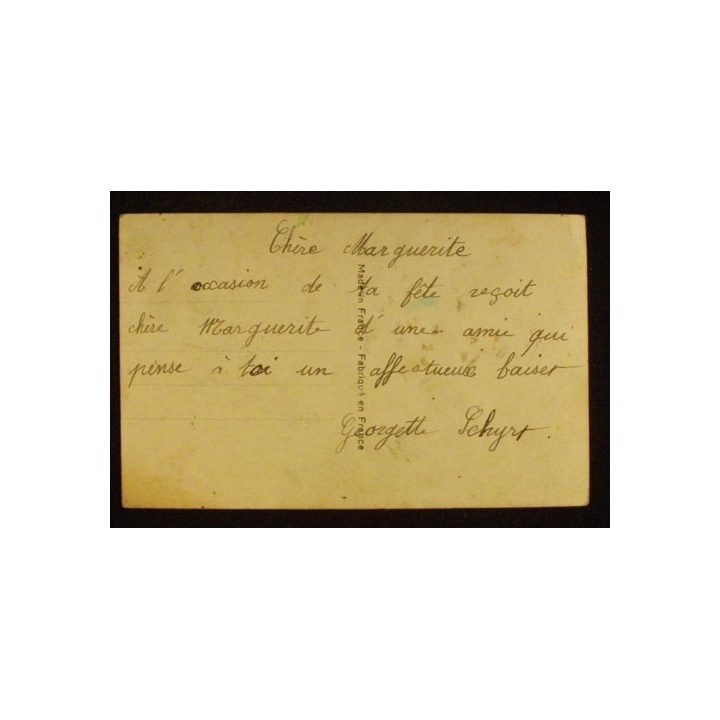 Chère Marguerite
A l'occasion de ta fête reçoit
chère Marguerite d'une amie qui
pense à toi un affectueux baiser
Georgette
Made in France - Fabriqué en France